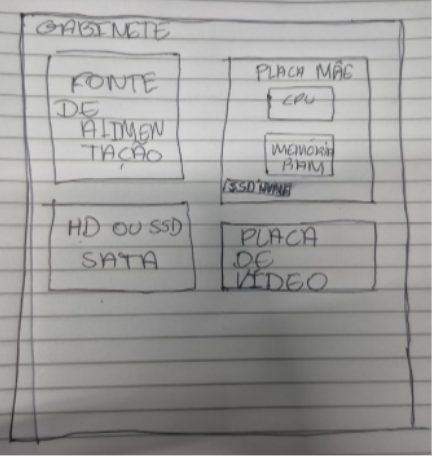 GABINETE
FONTE
DE
ALIMEN
TAÇÃO
PLACA MÃE
CPU
MEMÓRIA
RAM
SSD NVME
HD OU SSD
SATA
PLACA
DE
VÍDEO